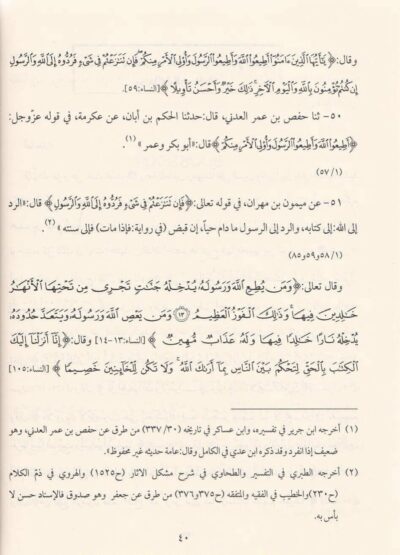 وقال:﴿ يَٰٓأَيُّهَا ٱلَّذِينَ ءَامَنُوٓا۟ أَطِيعُوا۟ ٱللَّهَ وَأَطِيعُوا۟ ٱلرَّسُولَ وَأُو۟لِى ٱلْأَمْرِ مِنكُمْ ۖ فَإِن تَنَٰزَعْتُمْ فِى شَىْءٍ فَرُدُّوهُ إِلَى ٱللَّهِ وَٱلرَّسُولِ
إِن كُنتُمْ تُؤْمِنُونَ بِٱللَّهِ وَٱلْيَوْمِ ٱلْءَاخِرِ ۚ ذَٰلِكَ خَيْرٌ وَأَحْسَنُ تَأْوِيلًا ﴾ [النساء:٥٩].
٥٠- ثنا حفص بن عمر العدني، قال:حدثنا الحكم بن أبان، عن عكرمة، في قوله عزوجل:
﴿أَطِيعُوا۟ ٱللَّهَ وَأَطِيعُوا۟ ٱلرَّسُولَ وَأُو۟لِى ٱلْأَمْرِ مِنكُمْ﴾قال:«أبو بكر وعمر » (١).
(٥٧/١)
٥١- عن ميمون بن مهران، في قوله تعالى:﴿فَإِن تَنَٰزَعْتُمْ فِى شَىْءٍ فَرُدُّوهُ إِلَى ٱللَّهِ وَٱلرَّسُولِ﴾ قال:«الرد
إلى الله:إلى كتابه، والرد إلى الرسول ما دام حياً، إن قبض (في رواية:فإذا مات) فإلى سنته » (٢).
(٥٨/١و٥٩و٨٥)
وقال تعالى:﴿وَمَن يُطِعِ ٱللَّهَ وَرَسُولَهُۥ يُدْخِلْهُ جَنَّٰتٍ تَجْرِى مِن تَحْتِهَا ٱلْأَنْهَٰرُ
خَٰلِدِينَ فِيهَا ۚ وَذَٰلِكَ ٱلْفَوْزُ ٱلْعَظِيمُ ١٣ وَمَن يَعْصِ ٱللَّهَ وَرَسُولَهُۥ وَيَتَعَدَّ حُدُودَهُۥ
يُدْخِلْهُ نَارًا خَٰلِدًا فِيهَا وَلَهُۥ عَذَابٌ مُّهِينٌ ﴾ [النساء:١٣-١٤] وقال:﴿إِنَّآ أَنزَلْنَآ إِلَيْكَ
ٱلْكِتَٰبَ بِٱلْحَقِّ لِتَحْكُمَ بَيْنَ ٱلنَّاسِ بِمَآ أَرَىٰكَ ٱللَّهُ ۚ وَلَا تَكُن لِّلْخَآئِنِينَ خَصِيمًا ﴾ [النساء:١٠٥]
(١) أخرجه ابن جرير في تفسيره، وابن عساكر في تاريخه (٣٣٧/٣٠) من طرق عن حفص بن عمر العدني، وهو
ضعيف إذا انفرد وقد ذكره ابن عدي في الكامل وقال:عامة حديثه غير محفوظ».
(٢) أخرجه الطبري في التفسير والطحاوي في شرح مشكل الآثار (ح١٥٢٥) والهروي في ذمّ الكلام
(ح٢٣٠)والخطيب في الفقيه والمتفقه (ح٣٧٥و٣٧٦) من طرق عن جعفر وهو صدوق فالإسناد حسن لا
بأس به.
٤٠